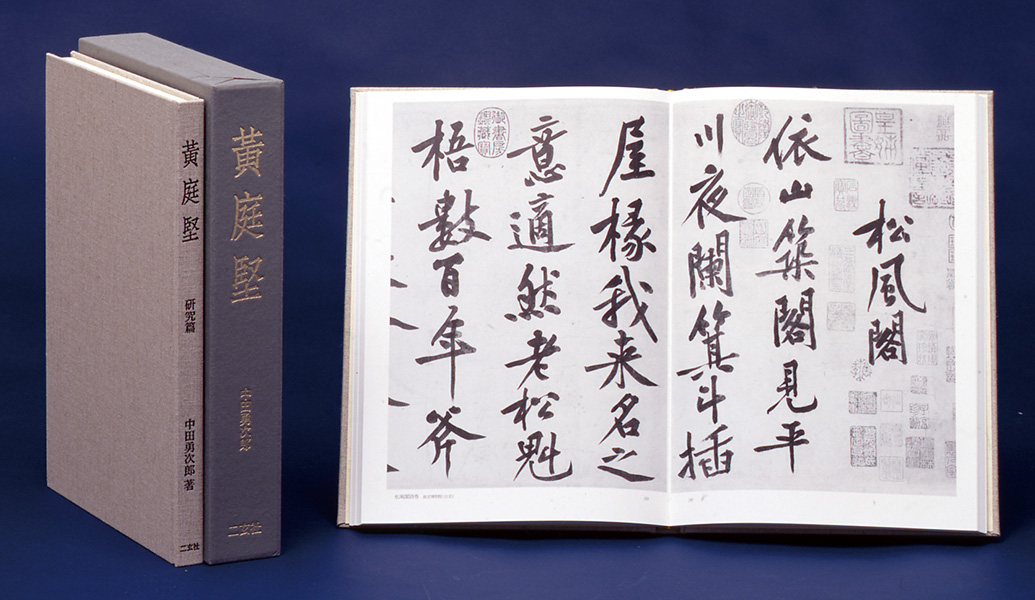 黄庭堅
研究篇
中田勇次郎 著
二玄社
黄庭堅
中田勇次郎
二玄社
松風閣
依山築閣見平
川夜闌箕斗插
屋椽我来名之
意適然老松魁
梧數百年斧
皇姊圖書
松風閣詩巻